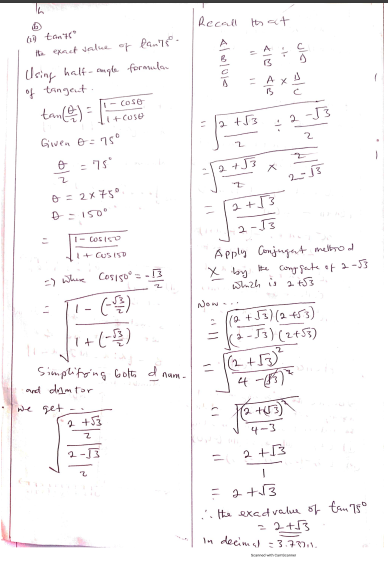 (ii) tan75°
the exact value of tan75°.
Using half-angle formular
of tangent.
tan(θ/2) = √((1 - cosθ)/(1 + cosθ))
Given θ = 75°
θ/2 = 75°
θ = 2 x 75°
θ = 150°
= √((1 - cos150)/(1 + cos150))
=> where cos150° = -√3/2
= √((1 - (-√3/2))/(1 + (-√3/2)))
Simplifying both d num-
and
we get - -
√(((2 + √3)/2)/((2 - √3)/2))
Recall that
(A/B)/(C/D) = A/B ÷ C/D
= A/B x D/C
= √((2 + √3)/2 ÷ (2 - √3)/2)
= √((2 + √3)/2 x 2/(2 - √3))
= √((2 + √3)/(2 - √3))
Apply Conjugate method
X by the conjugate of 2 - √3
which is 2 + √3
Now ...
= √(((2 + √3)(2 + √3))/((2 - √3)(2 + √3)))
= √((2 + √3)²/(4 - (√3)²))
= √((2 + √3)²/(4 - 3))
= (2 + √3)/1
= 2 + √3
∴ the exact value of tan75°
= 2 + √3
In decimal = 3.732
Scanned with CamScanner